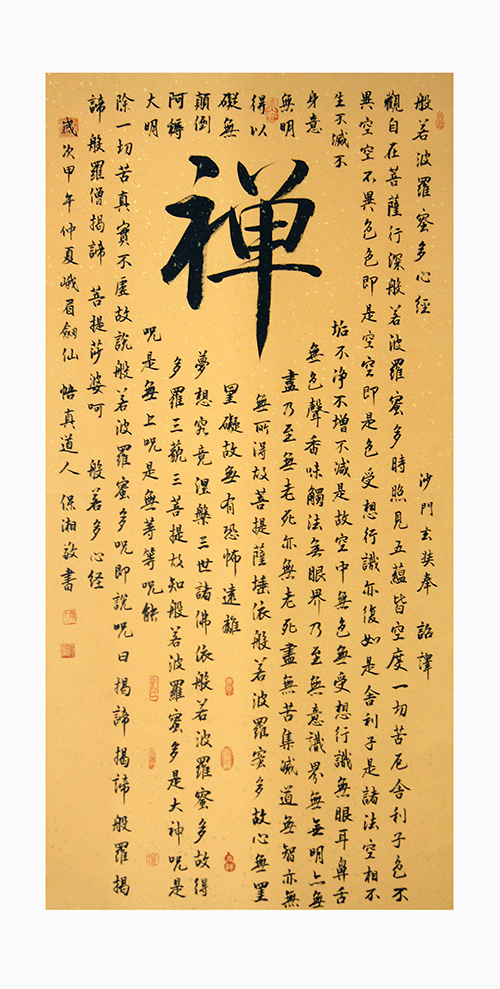 般若波羅蜜多心經 沙門玄奘奉 詔譯
觀自在菩薩行深般若波羅蜜多時照見五蘊皆空度一切苦厄舍利子色不
異空空不異色色即是空空即是色受想行識亦復如是舍利子是諸法空相不
生不滅不垢不淨不增不減是故空中無色無受想行識無眼耳鼻舌
身意無色聲香味觸法無眼界乃至無意識界無無明亦無
無明盡乃至無老死亦無老死盡無苦集滅道無智亦無
得以無所得故菩提薩埵依般若波羅蜜多故心無罣
礙無罣礙故無有恐怖遠離
顛倒夢想究竟涅槃三世諸佛依般若波羅蜜多故得
阿耨多羅三藐三菩提故知般若波羅蜜多是大神呪是
大明呪是無上呪是無等等呪能
除一切苦真實不虛故說般若波羅蜜多呪即說呪曰揭諦揭諦般羅揭
諦般羅僧揭諦 菩提莎婆呵 般若多心经
歲次甲午仲夏峨眉劍仙 悟真道人 保湘敬書
禅